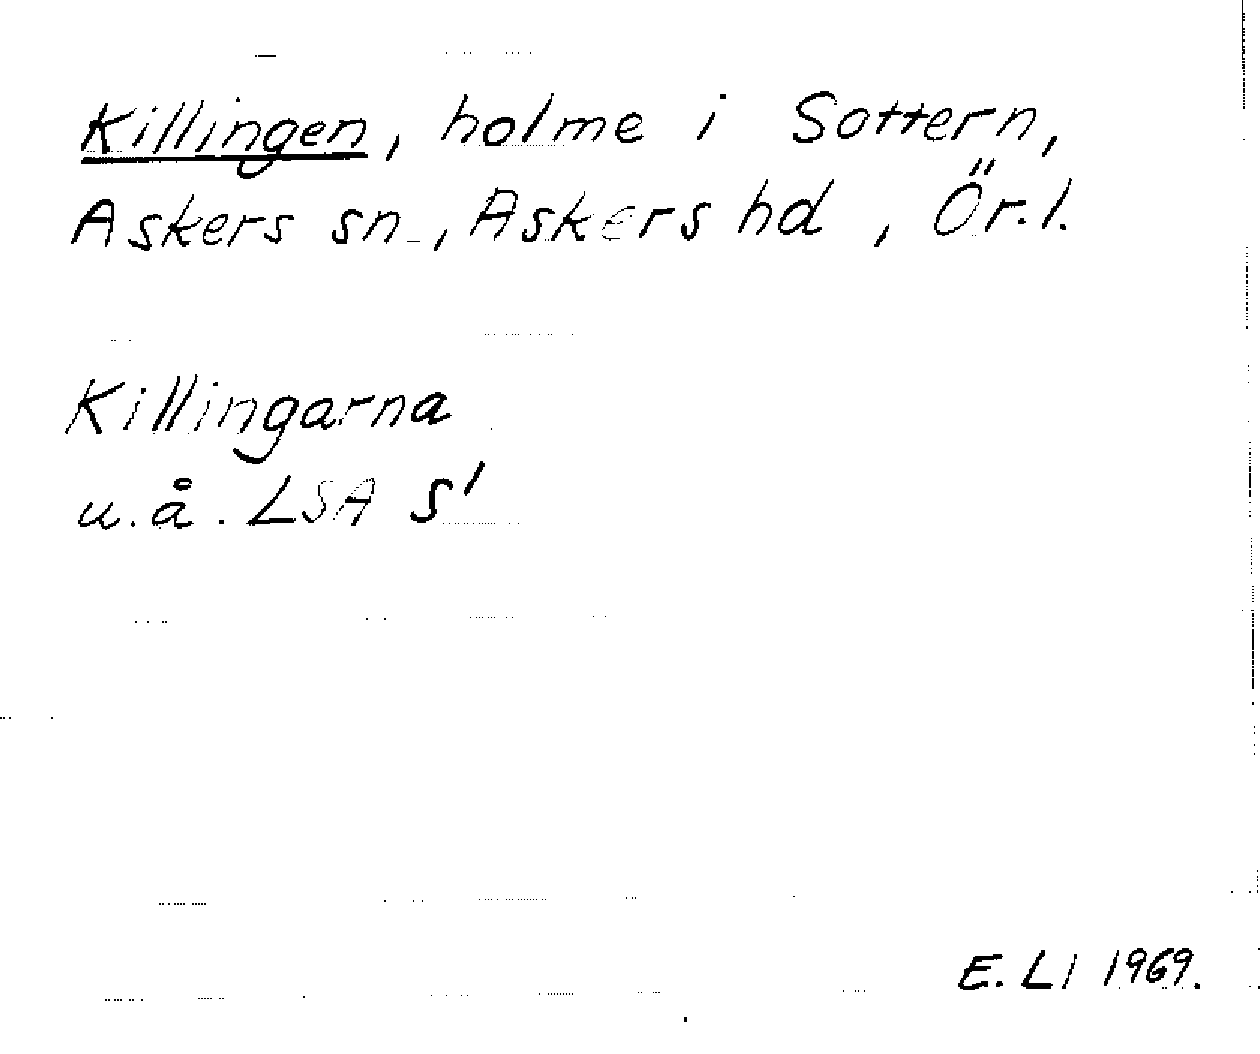 Killingen, holme i Sottern,
Askers sn., Askers hd, Ör.l.
Killingarna
u.å. LSA S'
E. Ll 1969.